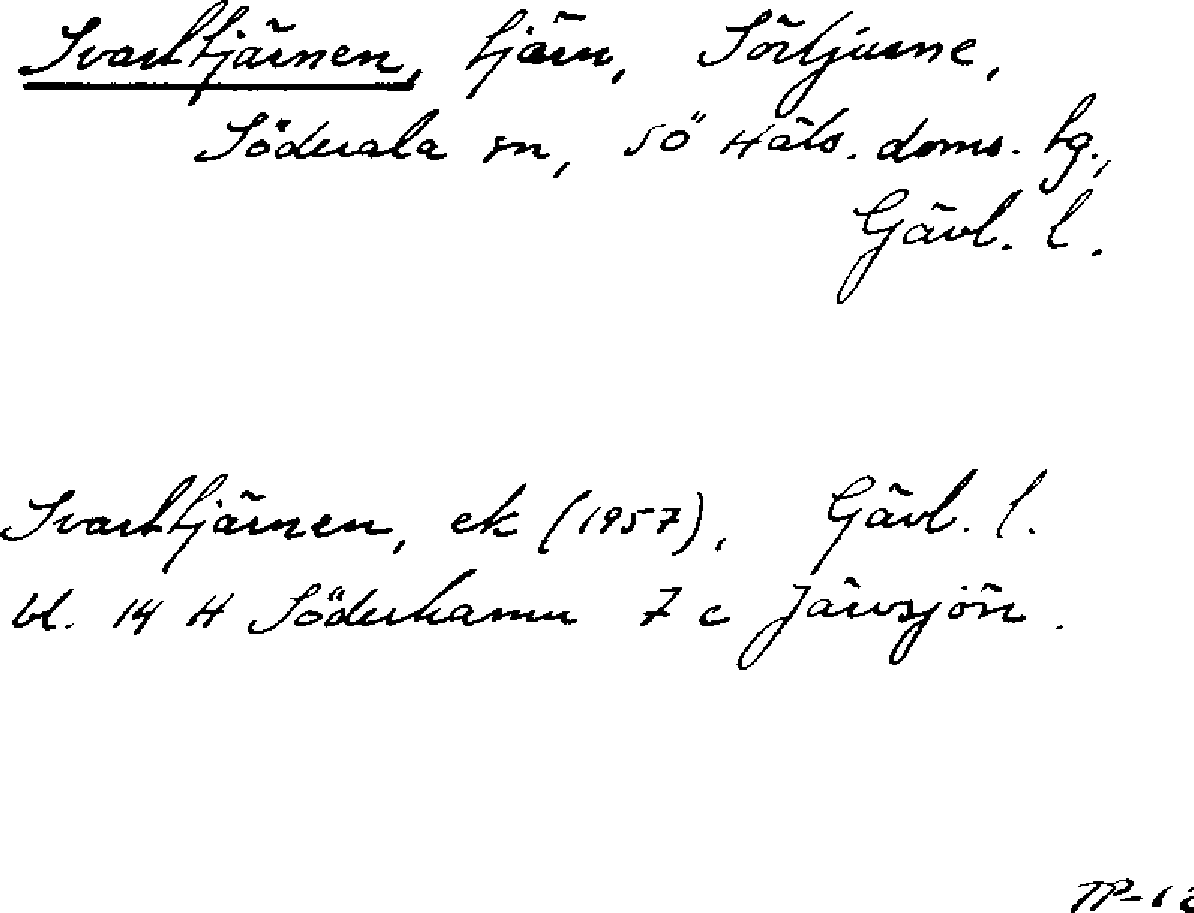 Svarttjärnen, tjärn, Sörljusne,
Söderala sn, SÖ Häls. doms. tg.,
Gävl. l.
Svarttjärnen, ek (1957), Gävl. l.
bl. 14 H Söderhamn 7 c Järvsjön.